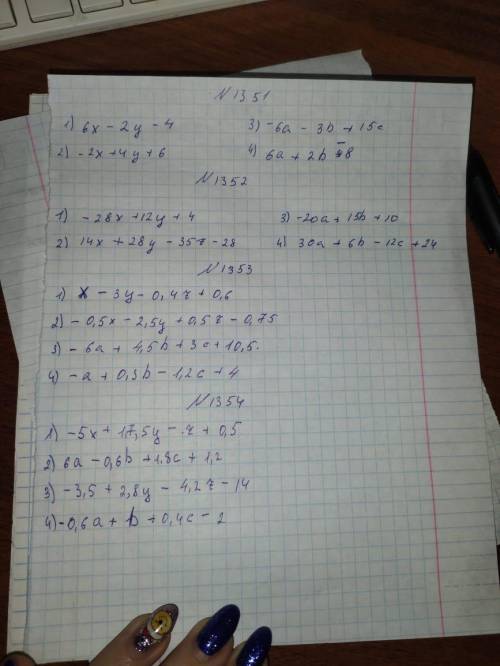 N1351
1) 6x - 2y - 4
3) -6a - 3b + 15c
2) -2x + 4y + 6
4) 6a + 2b - 8
N1352
1) -28x + 12y + 4
3) -20a + 15b + 10
2) 14x + 28y - 35z - 28
4) 30a + 6b - 12c + 24
N1353
1) x - 3y - 0,4z + 0,6
2) -0,5x - 2,5y + 0,5z - 0,75
3) -6a + 4,5b + 3c + 10,5.
4) -a + 0,3b - 1,2c + 4
N1354
1) -5x + 17,5y - z + 0,5
2) 6a - 0,6b + 1.8c + 1,2
3) -3,5 + 2,8y - 4,2z - 14
4) -0,6a + b + 0,4c - 2